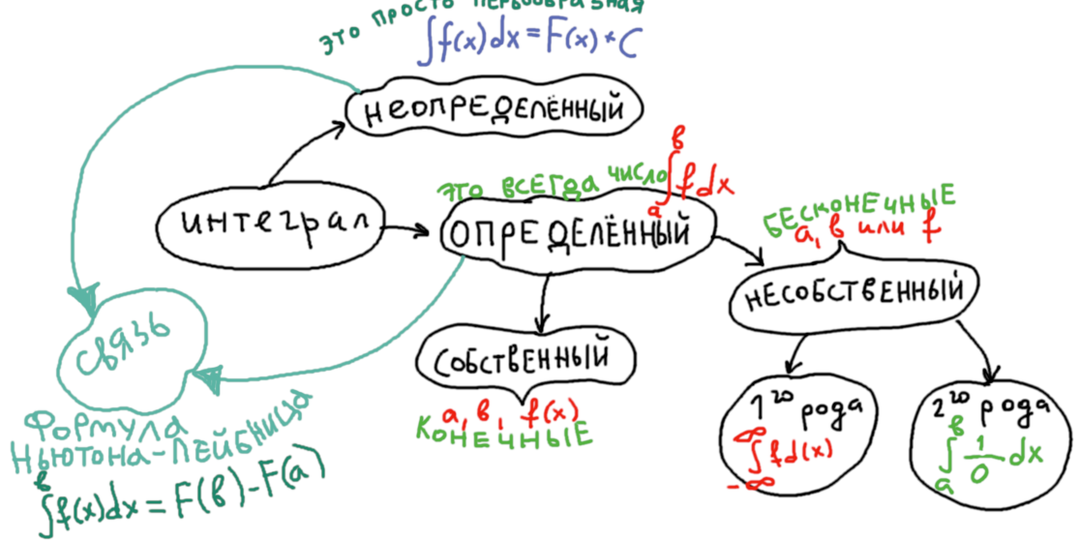 это просто первообразная
∫f(x)dx = F(x) + C
неопределённый
интеграл
это всегда число
∫ₐᵇ f dx
определённый
бесконечные
a, b или f
несобственный
связь
собственный
a, b, f(x)
конечные
1го рода
∫₋∞^∞ fd(x)
2го рода
∫ₐᵇ 1/0 dx
Формула
Ньютона-Лейбница
∫ᵇf(x)dx = F(b)-F(a)